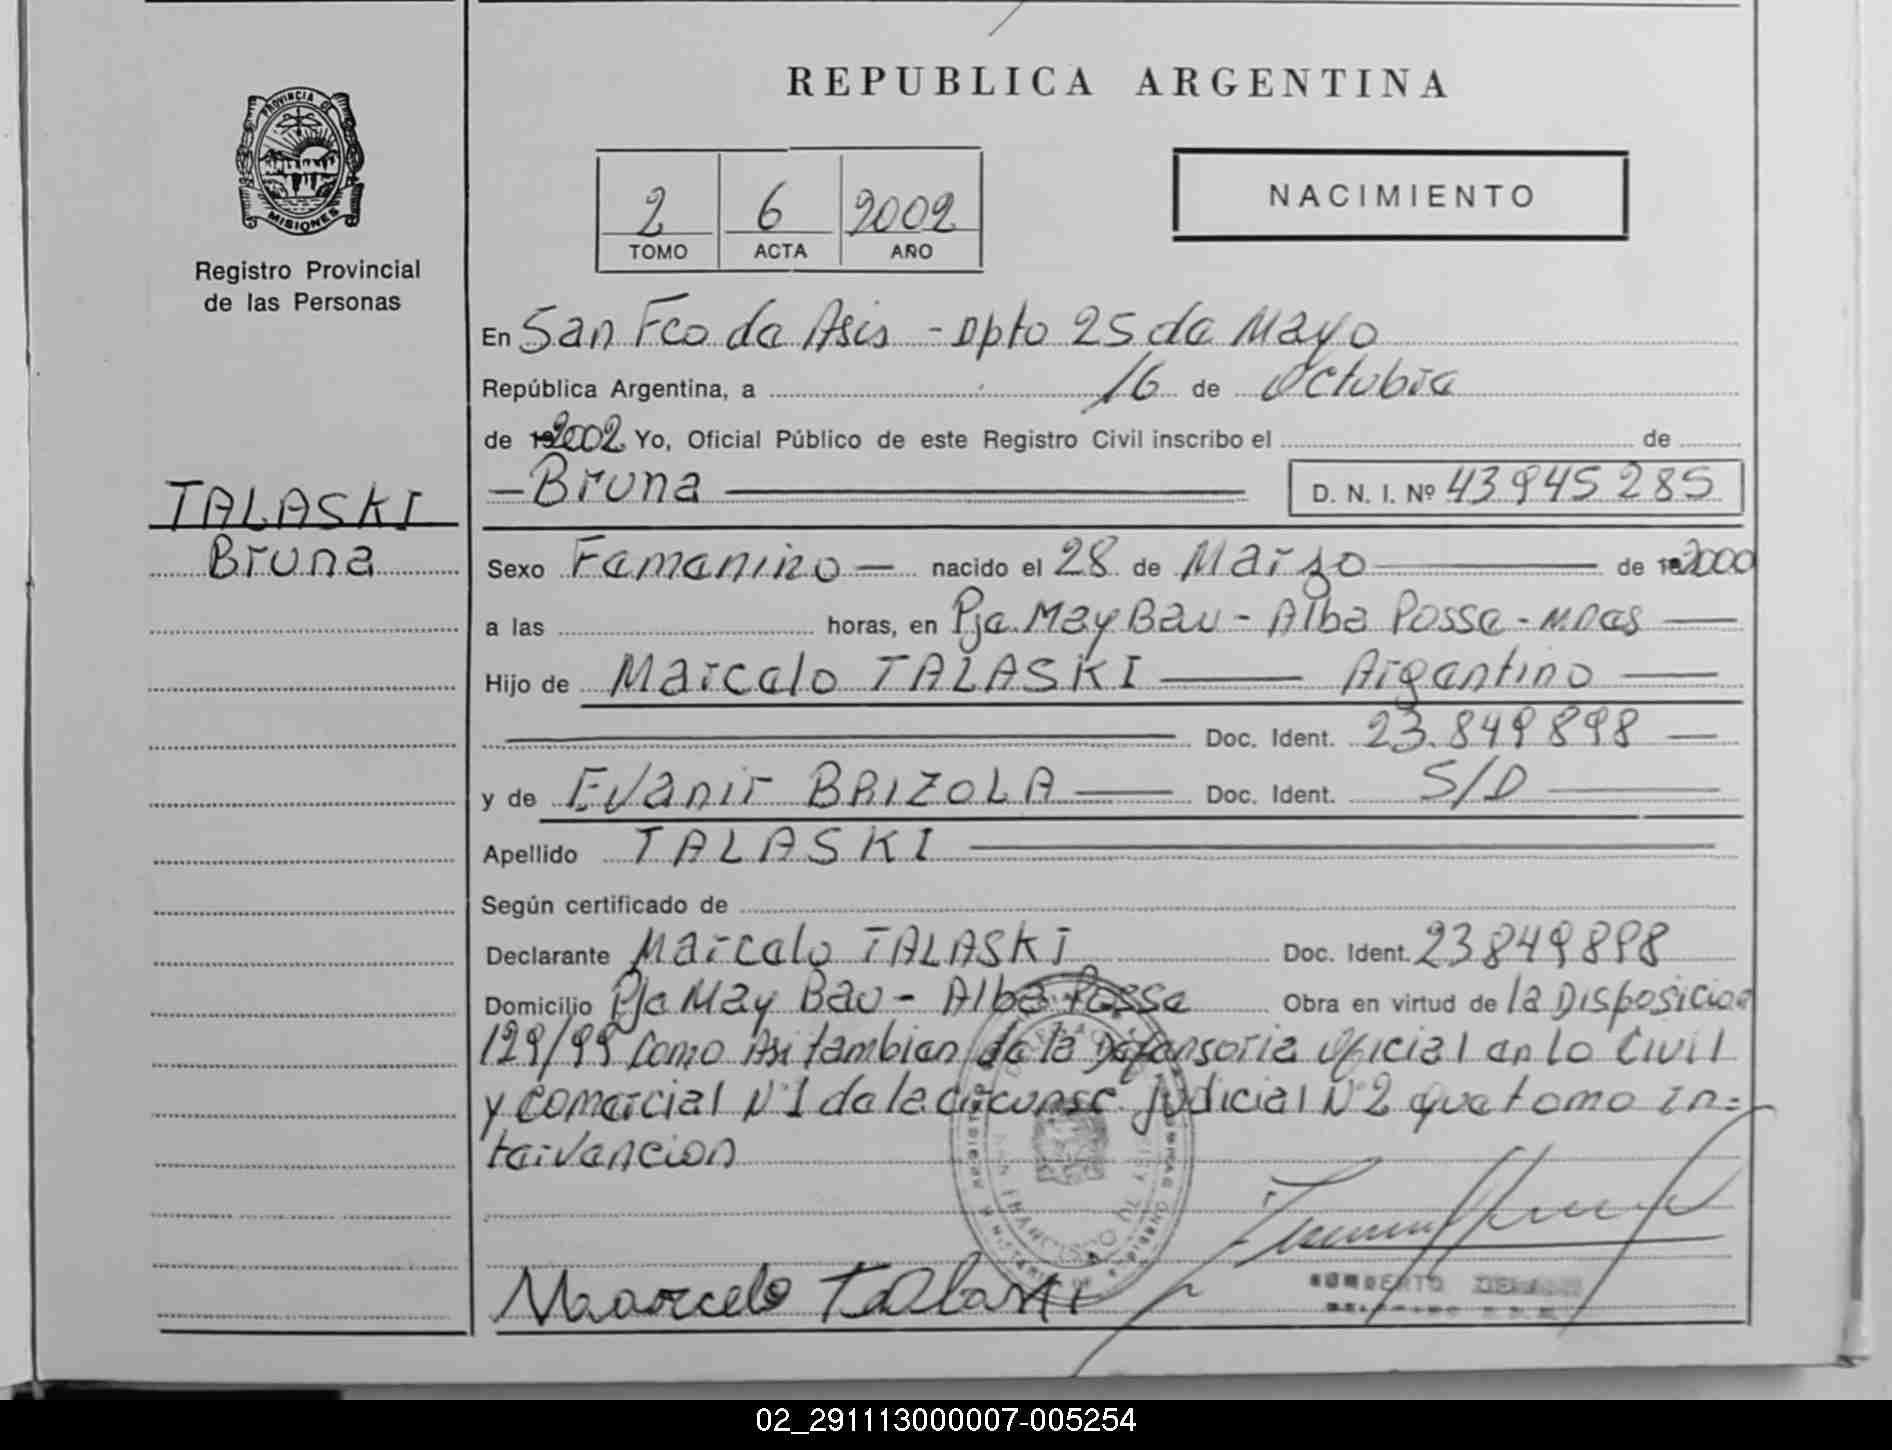 REPUBLICA ARGENTINA
PROVINCIA DE
MISIONES
Registro Provincial
de las Personas
2 6 2002
TOMO ACTA AÑO
NACIMIENTO
TALASKI
Bruna
En San Fco de Asis - Dpto 25 de Mayo
República Argentina, a 16 de Octubre
de 2002 Yo, Oficial Público de este Registro Civil inscribo el de
- Bruna
D. N. I. Nº 43945285
Sexo Femenino - nacido el 28 de Marzo de 2000
a las horas, en Pje. May Bau - Alba Posse - Mnes
Hijo de Marcelo TALASKI Argentino
Doc. Ident. 23.849898
y de Evanir BRIZOLA Doc. Ident. S/D
Apellido TALASKI
Según certificado de
Declarante Marcelo TALASKI Doc. Ident. 23849898
Domicilio Pje May Bau - Alba Posse Obra en virtud de la Disposicion
129/99 como Asi tambien de la Defensoria Oficial en lo Civil
y Comercial Nº1 de la circunsc. judicial Nº2 que tomo in=
tervencion
Marcelo Talaski
02_291113000007-005254